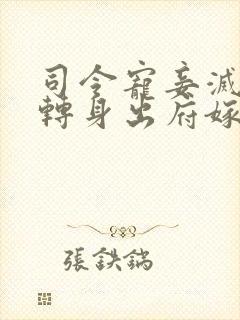 司令寵妾滅
轉身出府嫁
張鉄鍋